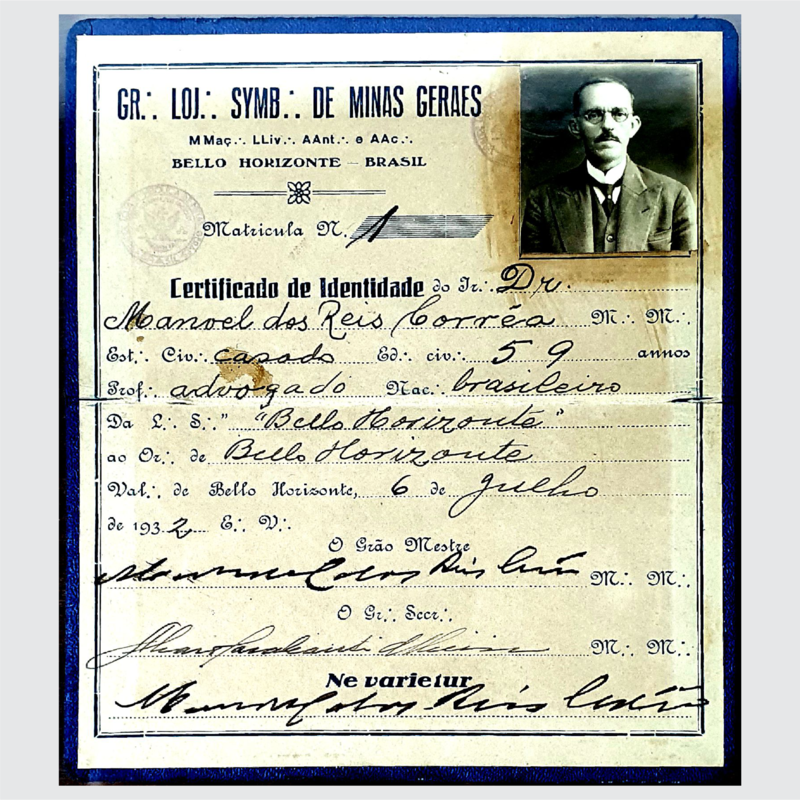 GR∴ LOJ∴ SYMB∴ DE MINAS GERAES
MMaç∴ LLiv∴ AAnt∴ e AAc∴
BELLO HORIZONTE – BRASIL
Matricula N. 1
Certificado de Identidade do Ir∴ Dr.
Manoel dos Reis Corrêa M∴ M∴
Est∴ Civ∴ casado Ed∴ civ∴ 59 annos
Prof∴ advogado Nac∴ brasileiro
Da L∴ S∴" "Bello Horizonte"
ao Or∴ de Bello Horizonte
Val∴ de Bello Horizonte, 6 de Julho
de 1932 E∴ V∴
O Grão Mestre
Manoel dos Reis Corrêa M∴ M∴
O Gr∴ Secr∴
M∴ M∴
Ne varietur
Manoel dos Reis Corrêa